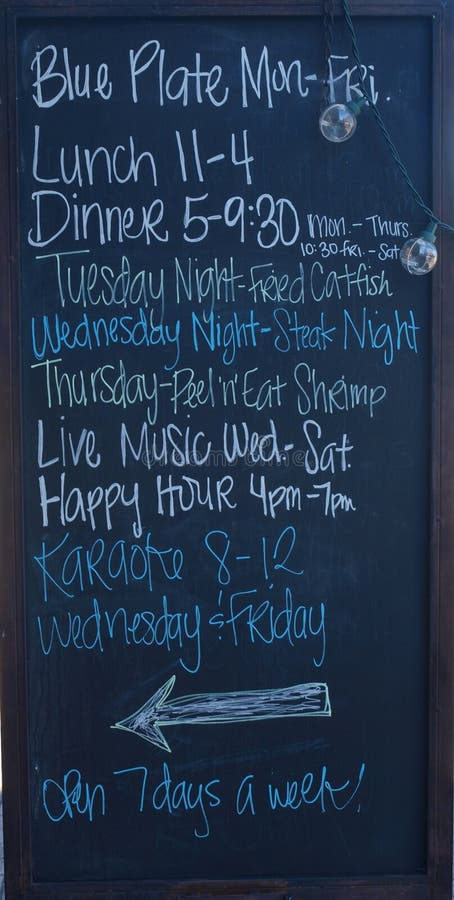 Blue Plate Mon-Fri.
Lunch 11-4
Dinner 5-9:30 Mon. - Thurs.
10:30 Fri. - Sat
Tuesday Night-Fried Catfish
Wednesday Night-Steak Night
Thursday-Peel 'n' Eat Shrimp
Live Music Wed-Sat.
Happy Hour 4pm-7pm
Karaoke 8-12
Wednesday & Friday
open 7 days a week!